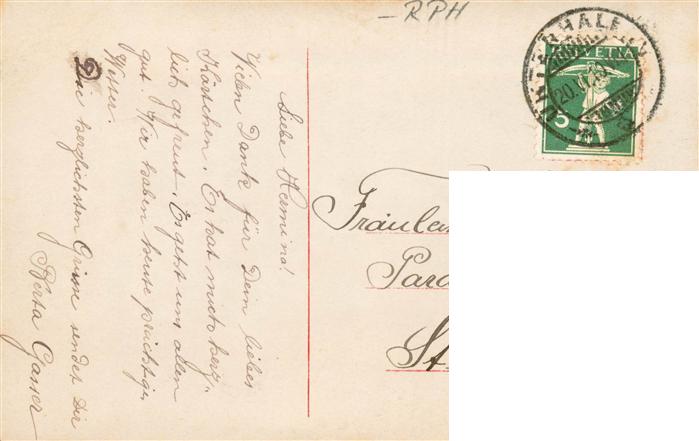 -RPH
UNTERHALLAU
HELVETIA
20.
5
Liebe Hermina!
Vielen Dank für Dein liebes
Kärtchen. Es hat mich herz-
lich gefreut. Es geht uns allen
gut. Wir haben heute prächtiges
Wetter.
Die herzlichsten Grüsse sendet Dir
Berta Gasser
Fräulein
Para
St